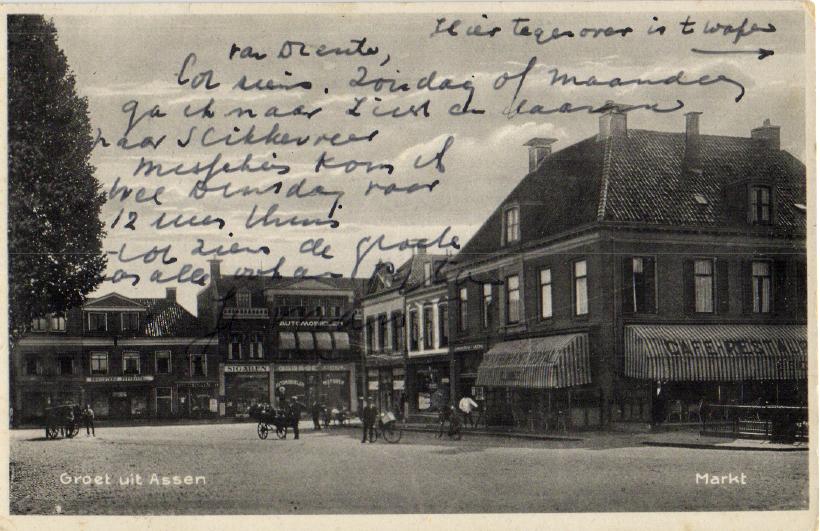 Hier tegenover is t wapen
van Drente,
tot ziens. Zondag of maandag
ga ik naar Ziest en daarna
naar Slikkerveer
Misschien kom ik
Dinsdag voor
12 uur thuis
tot ziens de groeten
AUTOMOBIELEN
SIGAREN
CAFE-REST
Groet uit Assen
Markt